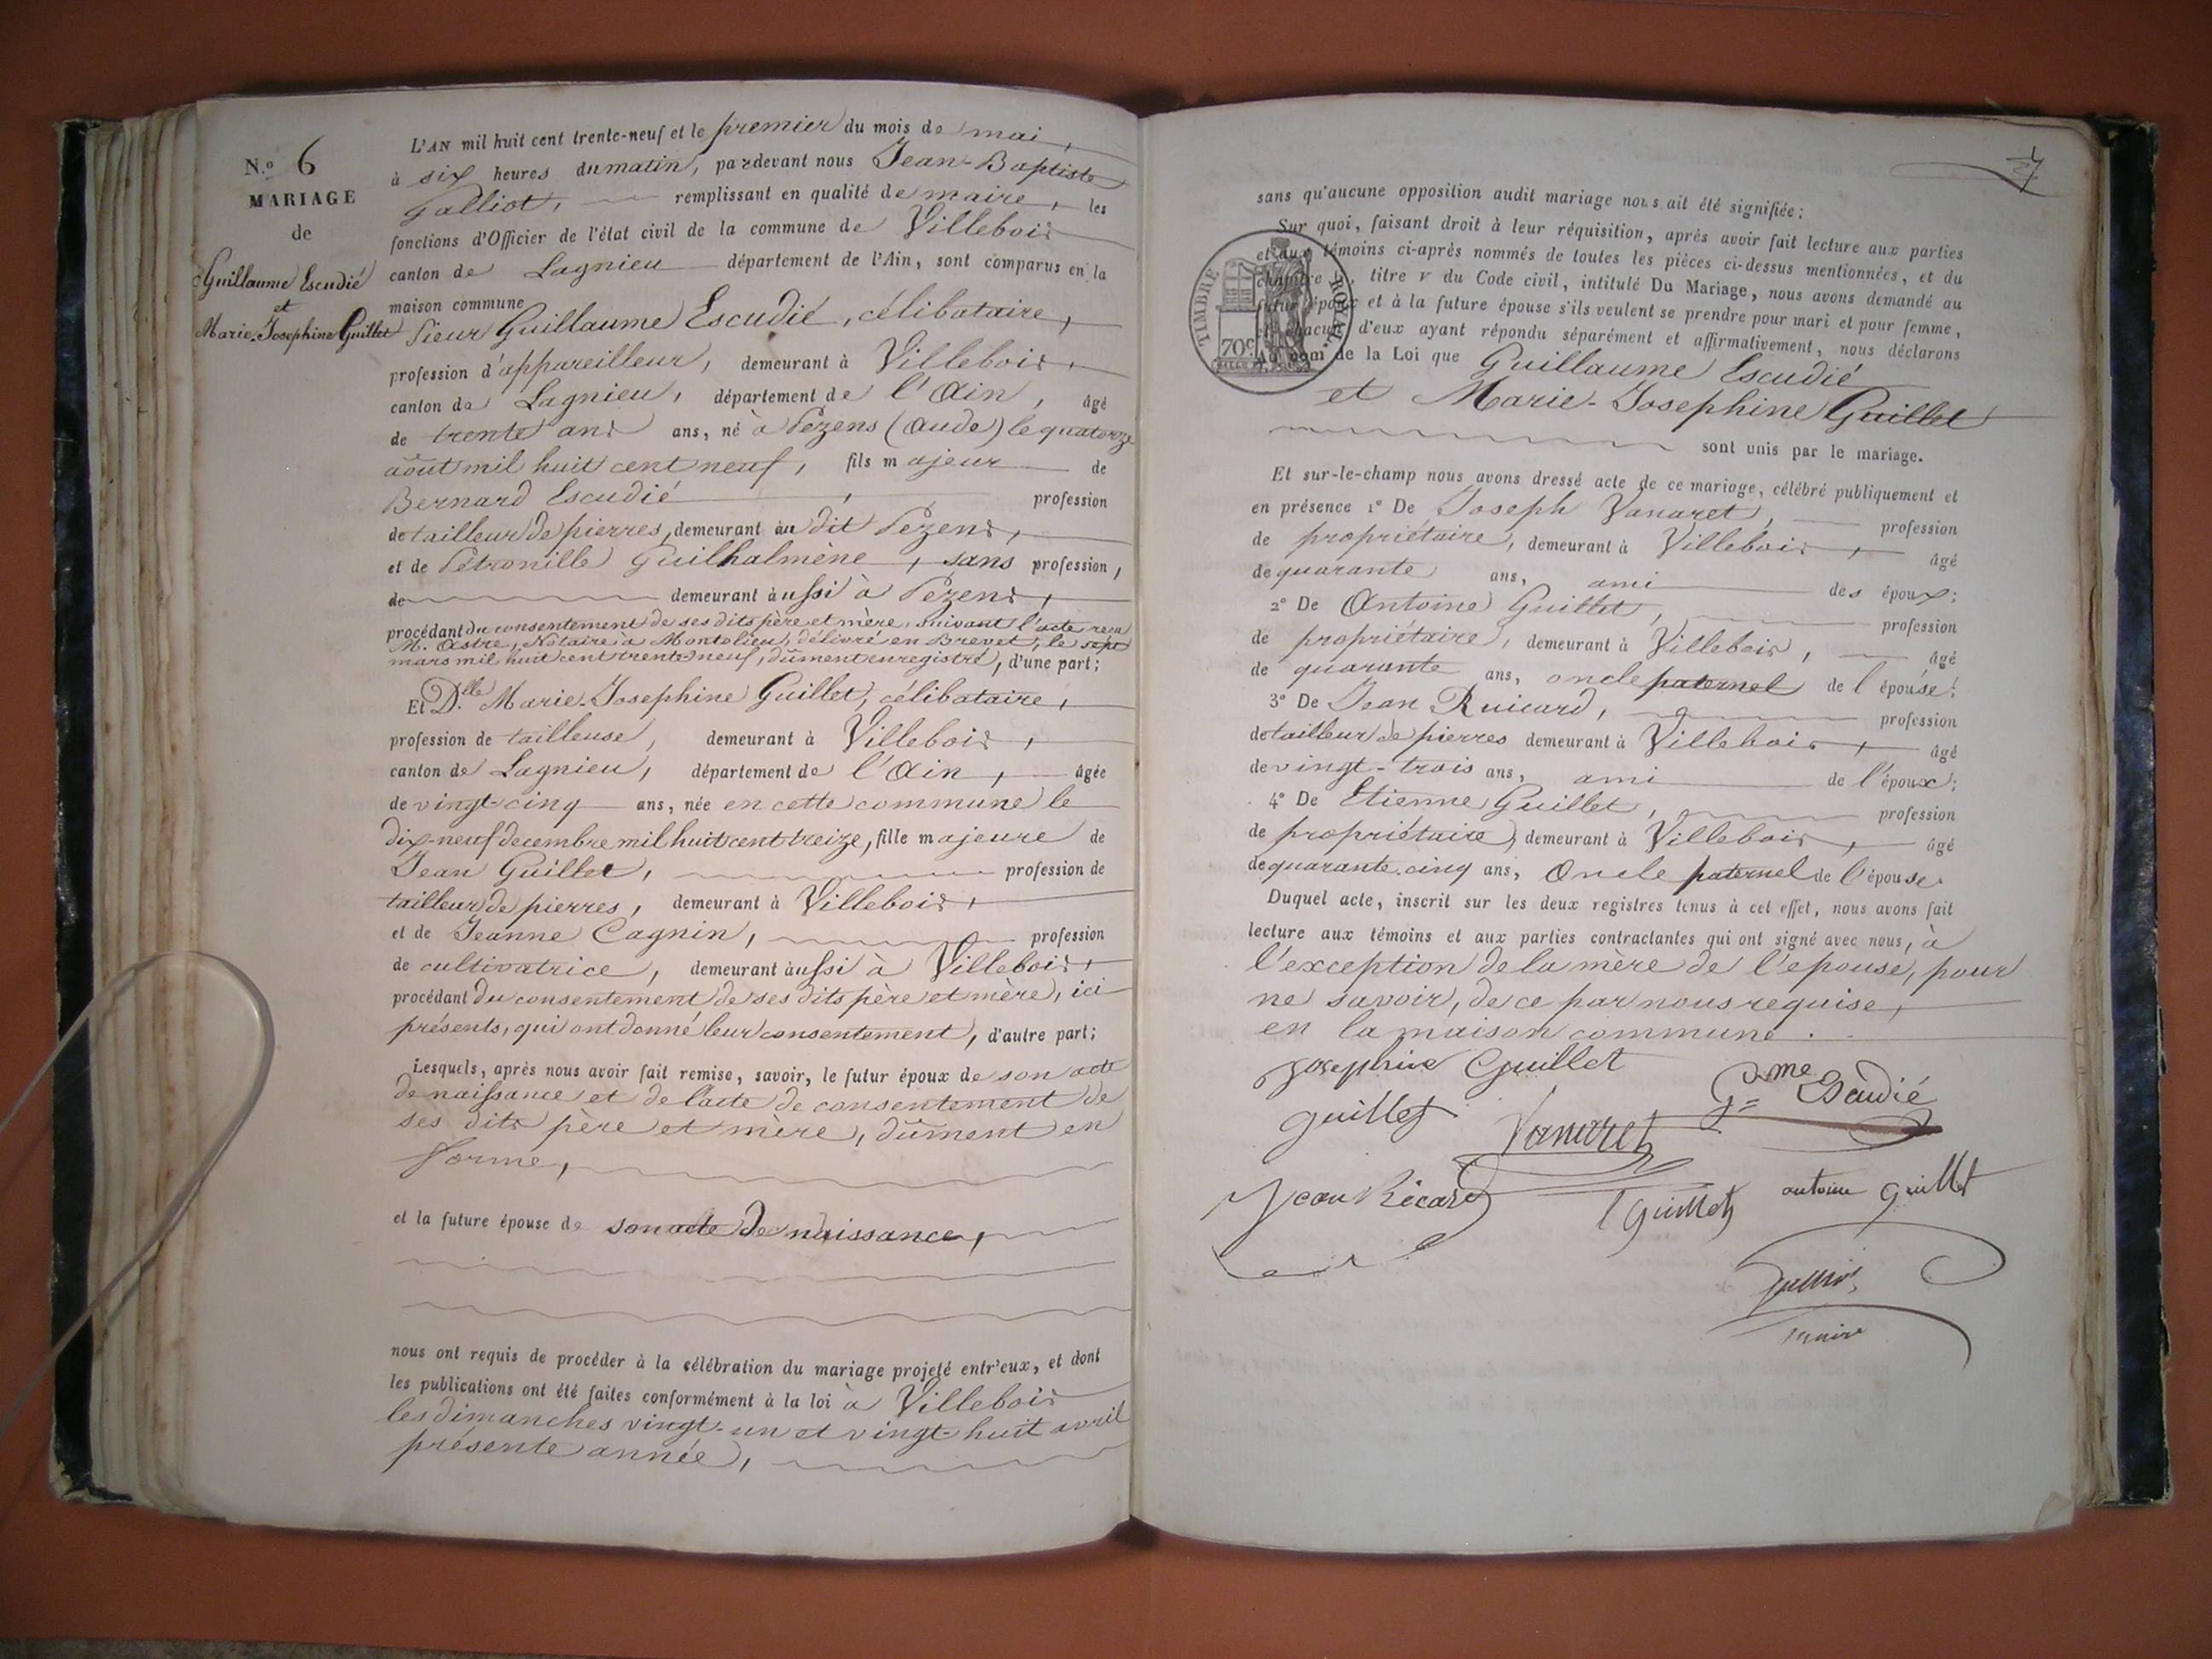 N.o 6
MARIAGE
de
Guillaume Escudié
et
Marie-Josephine Guillet
L'AN mil huit cent trente-neuf et le premier du mois de mai,
à six heures du matin, pardevant nous Jean-Baptiste
Galliot, remplissant en qualité de maire, les
fonctions d'Officier de l'état civil de la commune de Villebois
canton de Lagnieu département de l'Ain, sont comparus en la
maison commune
Sieur Guillaume Escudié, célibataire,
profession d'appareilleur, demeurant à Villebois,
canton de Lagnieu, département de l'Ain, âgé
de trente ans ans, né à Pezens (Aude) le quatorze
août mil huit cent neuf, fils majeur de
Bernard Escudié, profession
de tailleur de pierres, demeurant au dit Pezens,
et de Pétronille Guilhalmène, sans profession,
de demeurant aussi à Pezens,
procédant du consentement de ses dits père et mère, suivant l'acte reçu
M. Astre, Notaire à Montolieu, délivré en Brevet, le sept
mars mil huit cent trente-neuf, dûment enregistré, d'une part;
Et D.lle Marie-Josephine Guillet, célibataire,
profession de tailleuse, demeurant à Villebois,
canton de Lagnieu, département de l'Ain, âgée
de vingt-cinq ans, née en cette commune le
dix-neuf decembre mil huit cent treize, fille majeure de
Jean Guillet, profession de
tailleur de pierres, demeurant à Villebois,
et de Jeanne Cagnin, profession
de cultivatrice, demeurant aussi à Villebois,
procédant du consentement de ses dits père et mère, ici
présents, qui ont donné leur consentement, d'autre part;
Lesquels, après nous avoir fait remise, savoir, le futur époux de son acte
de naissance et de l'acte de consentement de
ses dits père et mère, dûment en
forme,
et la future épouse de son acte de naissance,
nous ont requis de procéder à la célébration du mariage projeté entr'eux, et dont
les publications ont été faites conformément à la loi à Villebois
les dimanches vingt-un et vingt-huit avril
présente année,
sans qu'aucune opposition audit mariage nous ait été signifiée;
Sur quoi, faisant droit à leur réquisition, après avoir fait lecture aux parties
et aux témoins ci-après nommés de toutes les pièces ci-dessus mentionnées, et du
chapitre titre V du Code civil, intitulé Du Mariage, nous avons demandé au
futur époux et à la future épouse s'ils veulent se prendre pour mari et pour femme,
et chacun d'eux ayant répondu séparément et affirmativement, nous déclarons
au nom de la Loi que Guillaume Escudié
et Marie-Josephine Guillet
sont unis par le mariage.
TIMBRE ROYAL
70c
Et sur-le-champ nous avons dressé acte de ce mariage, célébré publiquement et
en présence 1° De Joseph Vanaret, profession
de propriétaire, demeurant à Villebois, âgé
de quarante ans, ami des époux;
2° De Antoine Guillet, profession
de propriétaire, demeurant à Villebois, âgé
de quarante ans, oncle paternel de l'épouse;
3° De Jean Ruicard, profession
de tailleur de pierres demeurant à Villebois, âgé
de vingt-trois ans, ami de l'époux;
4° De Etienne Guillet, profession
de propriétaire, demeurant à Villebois, âgé
de quarante-cinq ans, Oncle paternel de l'épouse.
Duquel acte, inscrit sur les deux registres tenus à cet effet, nous avons fait
lecture aux témoins et aux parties contractantes qui ont signé avec nous, à
l'exception de la mère de l'epouse, pour
ne savoir, de ce par nous requise,
en la maison commune.
Josephine Guillet
Gme Escudié
guillet
Vanaret
Jean Ricard
Guillet
antoine Guillet
Galliot,
maire